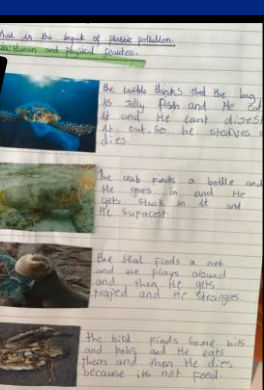 What is the impact of plastic pollution.
Human and physical
the turtle thinks that the bag
is Jelly Fish and He eat
it and He cant digest
it out. so he starves
dies.
the crab finds a bottle and
He goes in and He
gets stuck in it and
He
the Seal finds a net
and we plays around
and then He gets
traped and He strangles.
the bird finds some bits
and and He eats
them and then He dies
because its not food.